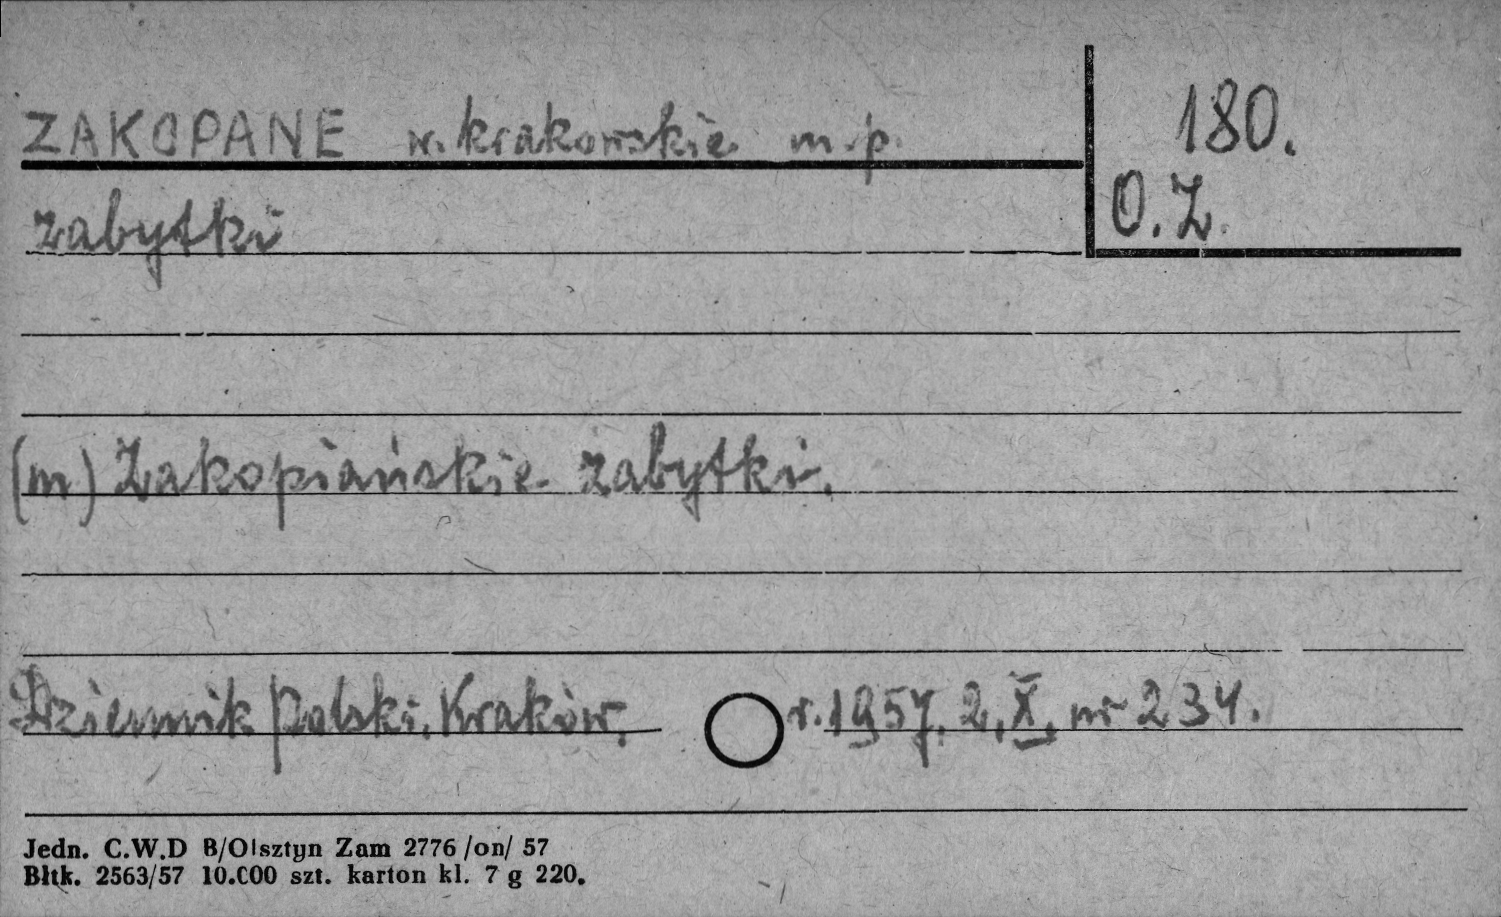 ZAKOPANE w. krakowskie m.p.
180.
O.Z.
zabytki
(m) Zakopiańskie zabytki.
Dziennik Polski. Kraków, r. 1957, 2. X, nr 234.
Jedn. C.W.D B/Olsztyn Zam 2776 /on/ 57
Błtk. 2563/57 10.000 szt. karton kl. 7 g 220.